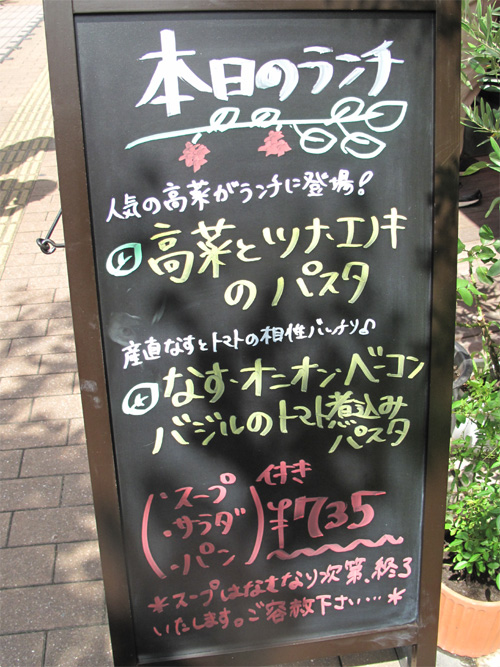 本日のランチ
人気の高菜がランチに登場！
高菜とツナ、エノキ
のパスタ
産直なすとトマトの相性バッチリ♪
なす・オニオン・ベーコン
バジルのトマト煮込み
パスタ
・スープ
・サラダ
・パン
付き
¥735
＊スープはなくなり次第、終了
いたします。ご容赦下さい…＊